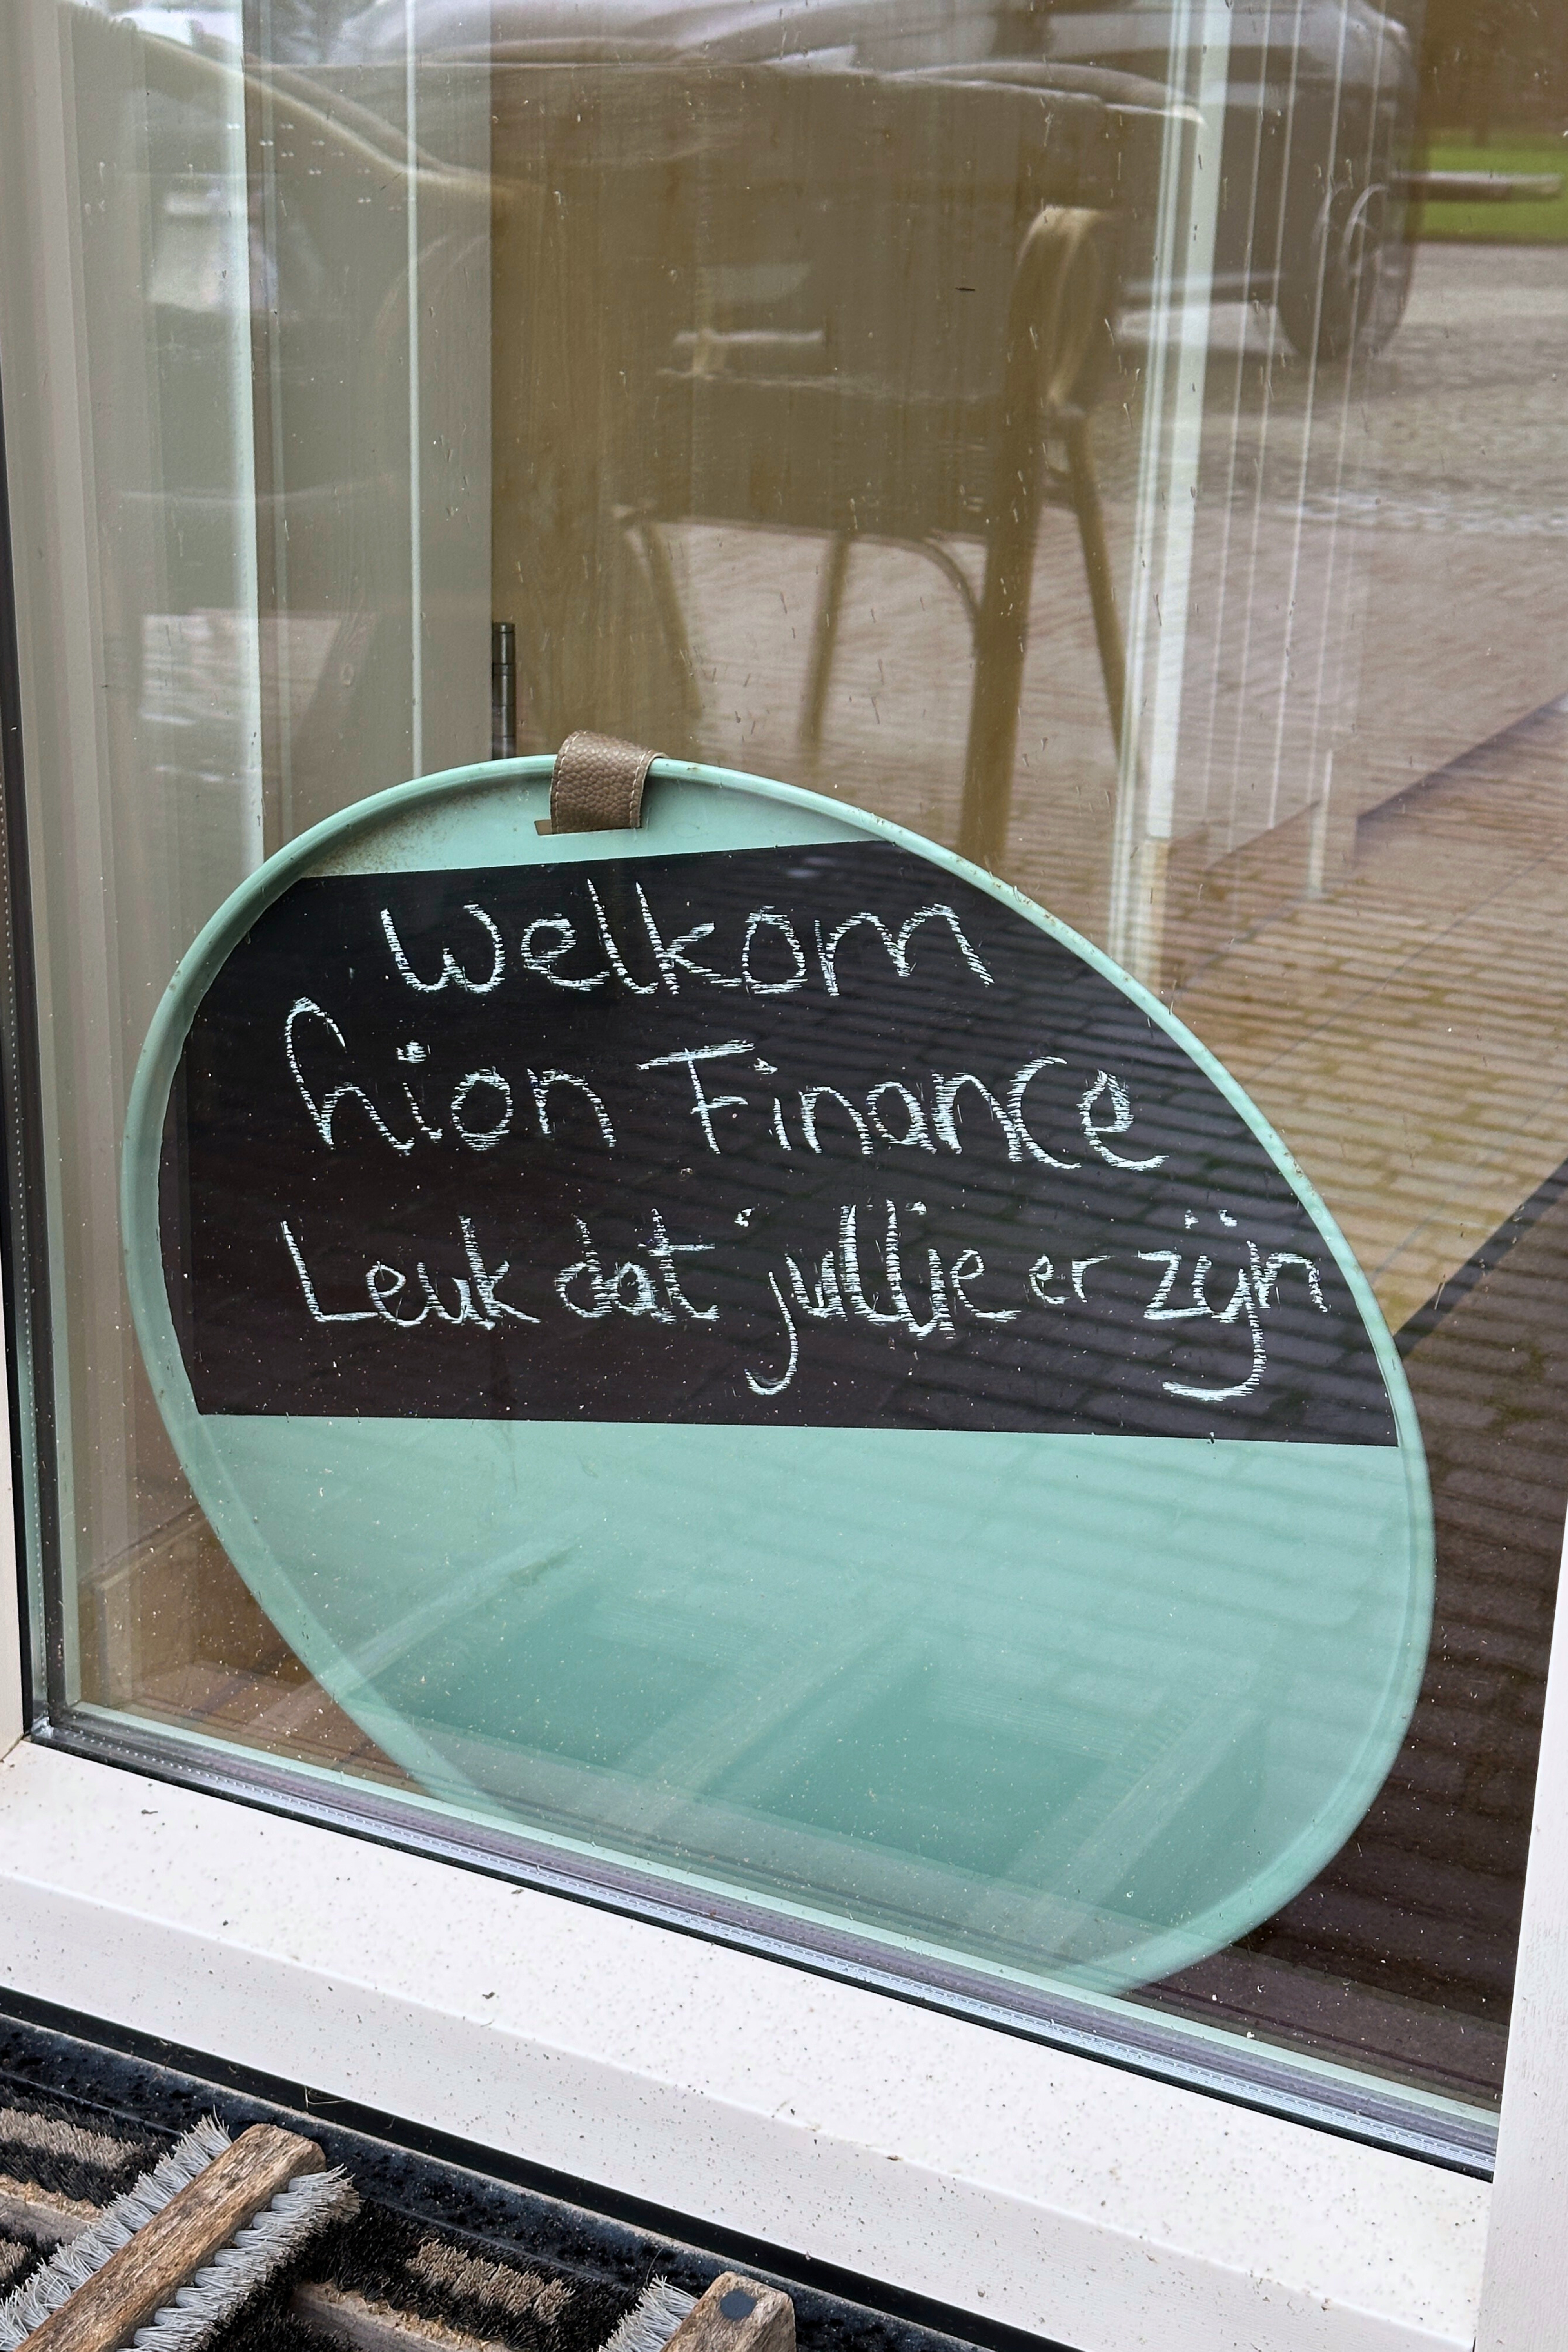 Welkom
hion Finance
Leuk dat jullie er zijn